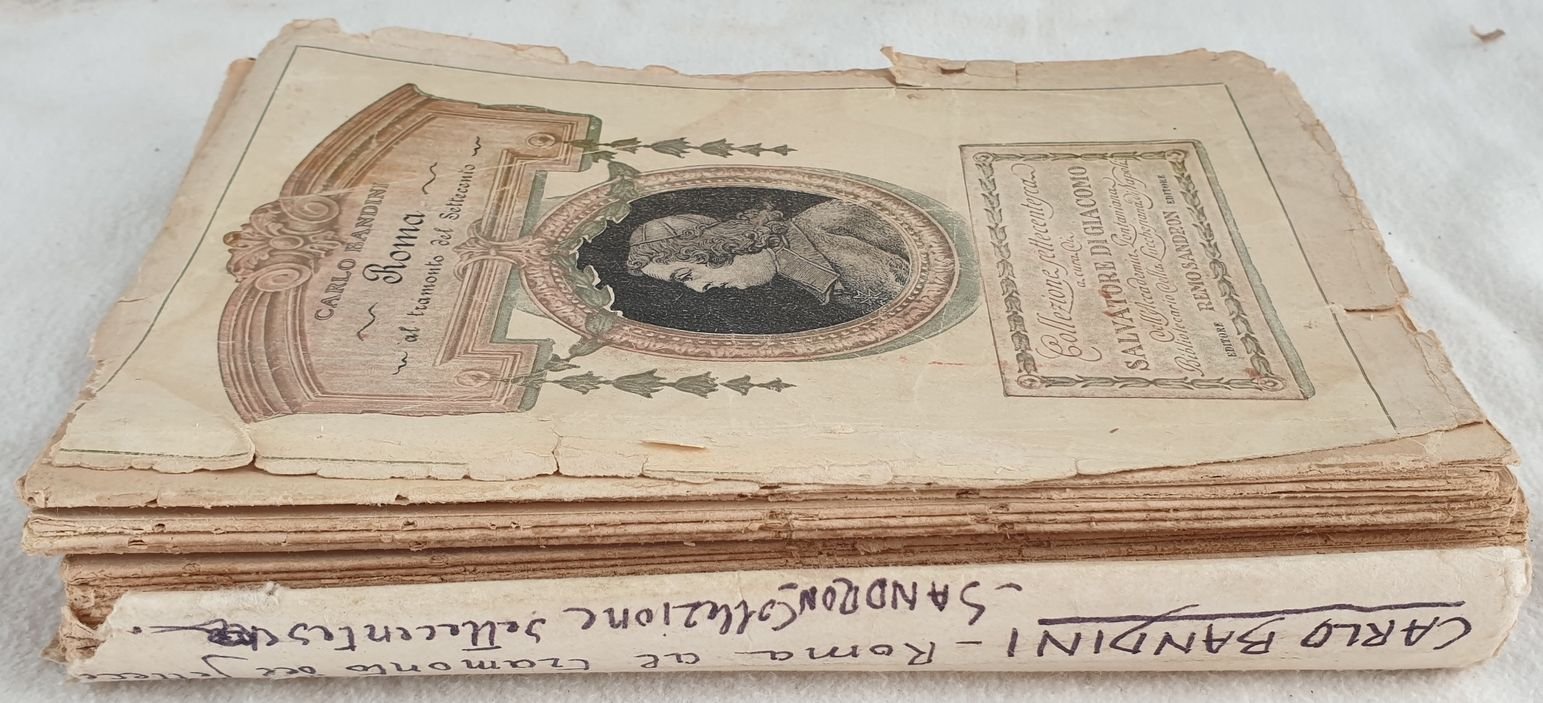 CARLO BANDINI
Roma
al tramonto del Settecento
Collezione settecentesca
a cura di
SALVATORE DI GIACOMO
dell'Accademia Pontaniana
Bibliotecario della Lucchesiana di Napoli
EDITORE REMO SANDRON EDITORE
CARLO BANDINI - Roma al tramonto del Settece
- SANDRON Collezione settecentesca